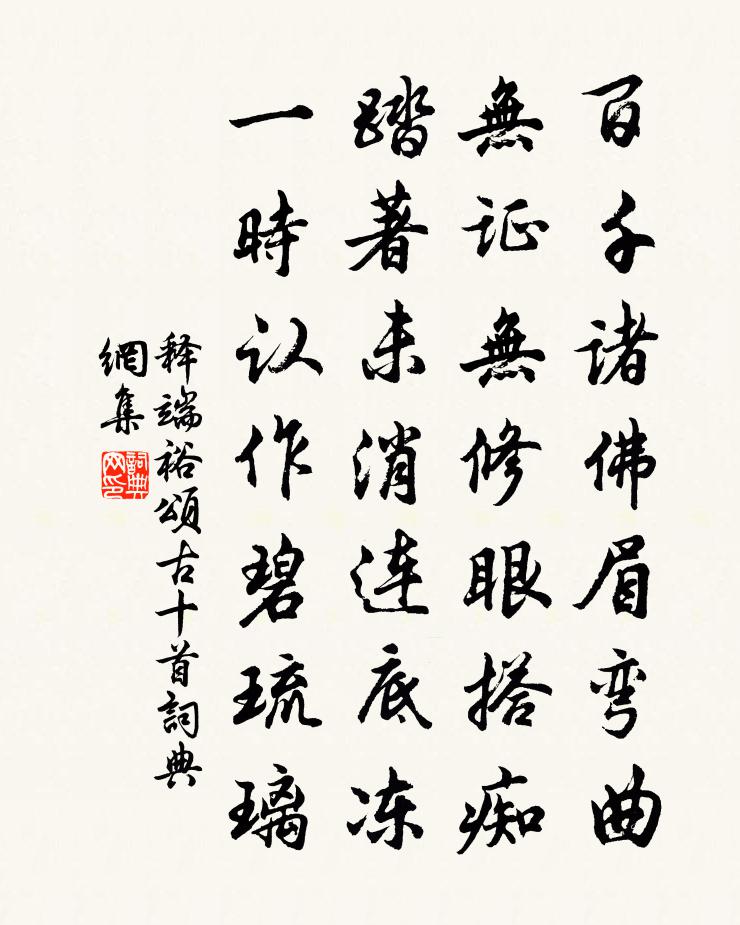 百千诸佛眉弯曲
無证無修眼搭痴
踏著未消连底冻
一時认作碧琉璃
释端裕頌古十首詞典
網集
詞典
网印